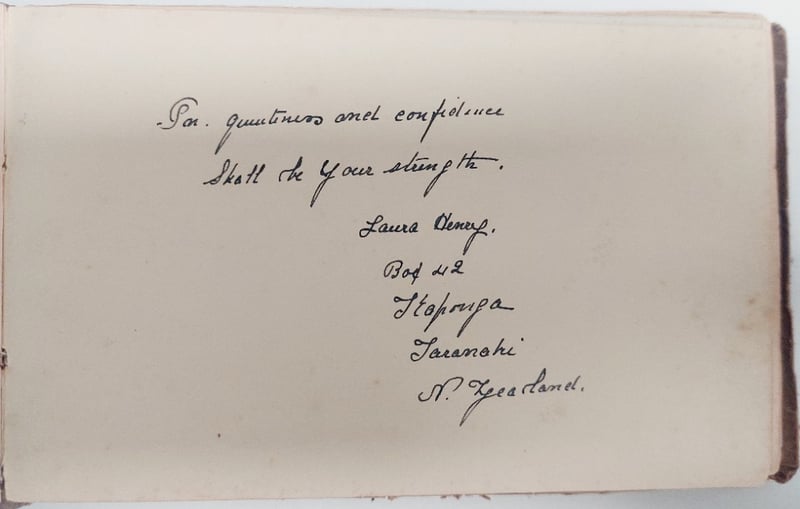 In. quietness and confidence
Shall be Your strength.
Laura Henry.
Box 42
Kaponga
Taranaki
N. Zealand.